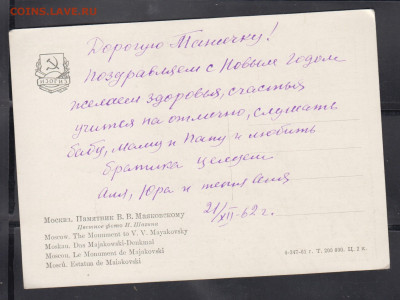 COINS.LAVE.RU
ИЗОГИЗ
Дорогую Танечку!
Поздравляем с Новым Годом
желаем здоровья, счастья
учится на отлично, слушать
бабу, маму и папу и любить
братика целуем
Аля, Юра и
21/XII-62 г.
Москва. Памятник В. В. Маяковскому
Цветное фото Н.
Moscow. The Monument to V. V. Mayakovsky
Moskau. Das Majakowski-Denkmal
Moscou. Le Monument de Maïakovski
Moscú. Estatua de Maiakovski